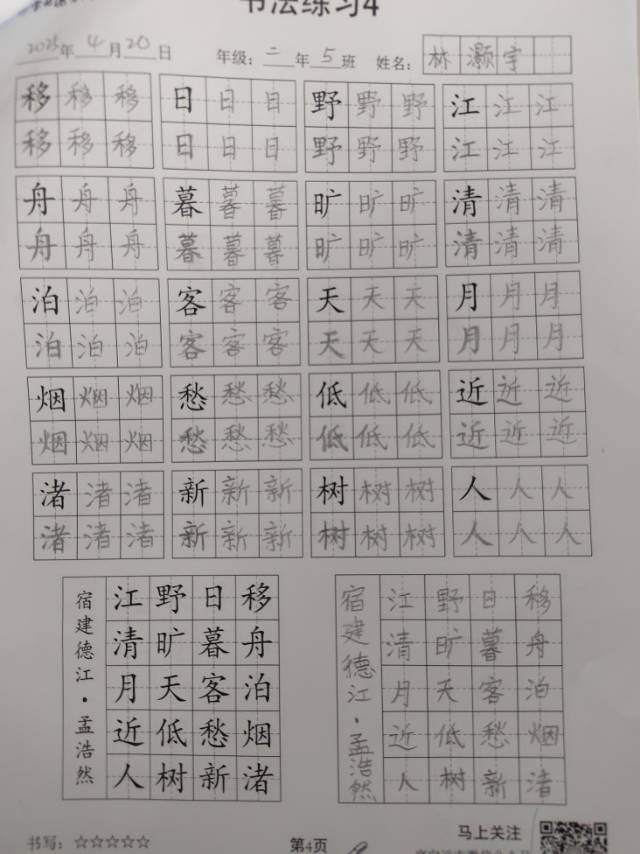 书法练习4
2025年4月20日 年级:二年5班 姓名:林灏宇
移移移 日日日 野野野 江江江
移移移 日日日 野野野 江江江
舟舟舟 暮暮暮 旷旷旷 清清清
舟舟舟 暮暮暮 旷旷旷 清清清
泊泊泊 客客客 天天天 月月月
泊泊泊 客客客 天天天 月月月
烟烟烟 愁愁愁 低低低 近近近
烟烟烟 愁愁愁 低低低 近近近
渚渚渚 新新新 树树树 人人人
渚渚渚 新新新 树树树 人人人
移舟泊烟渚
日暮客愁新
野旷天低树
江清月近人
宿建德江·孟浩然
移舟泊烟渚
日暮客愁新
野旷天低树
江清月近人
宿建德江·孟浩然
书写:☆☆☆☆☆ 第4页 马上关注